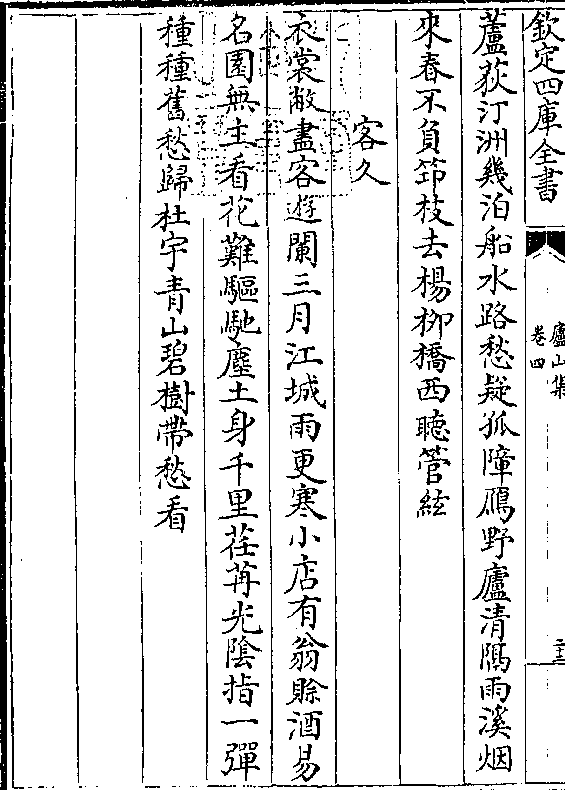 欽定四庫全書
廬山集
卷四
二十三
蘆荻汀洲幾泊船水路愁疑孤障鴈野廬清隔雨溪烟
來春不負筇枝去楊柳橋西聽管絃
客久
衣裳敝盡客遊闌三月江城雨更寒小店有翁賖酒易
名園無主看花難驅馳塵土身千里荏苒光陰指一彈
種種舊愁歸杜宇青山碧樹帶愁看